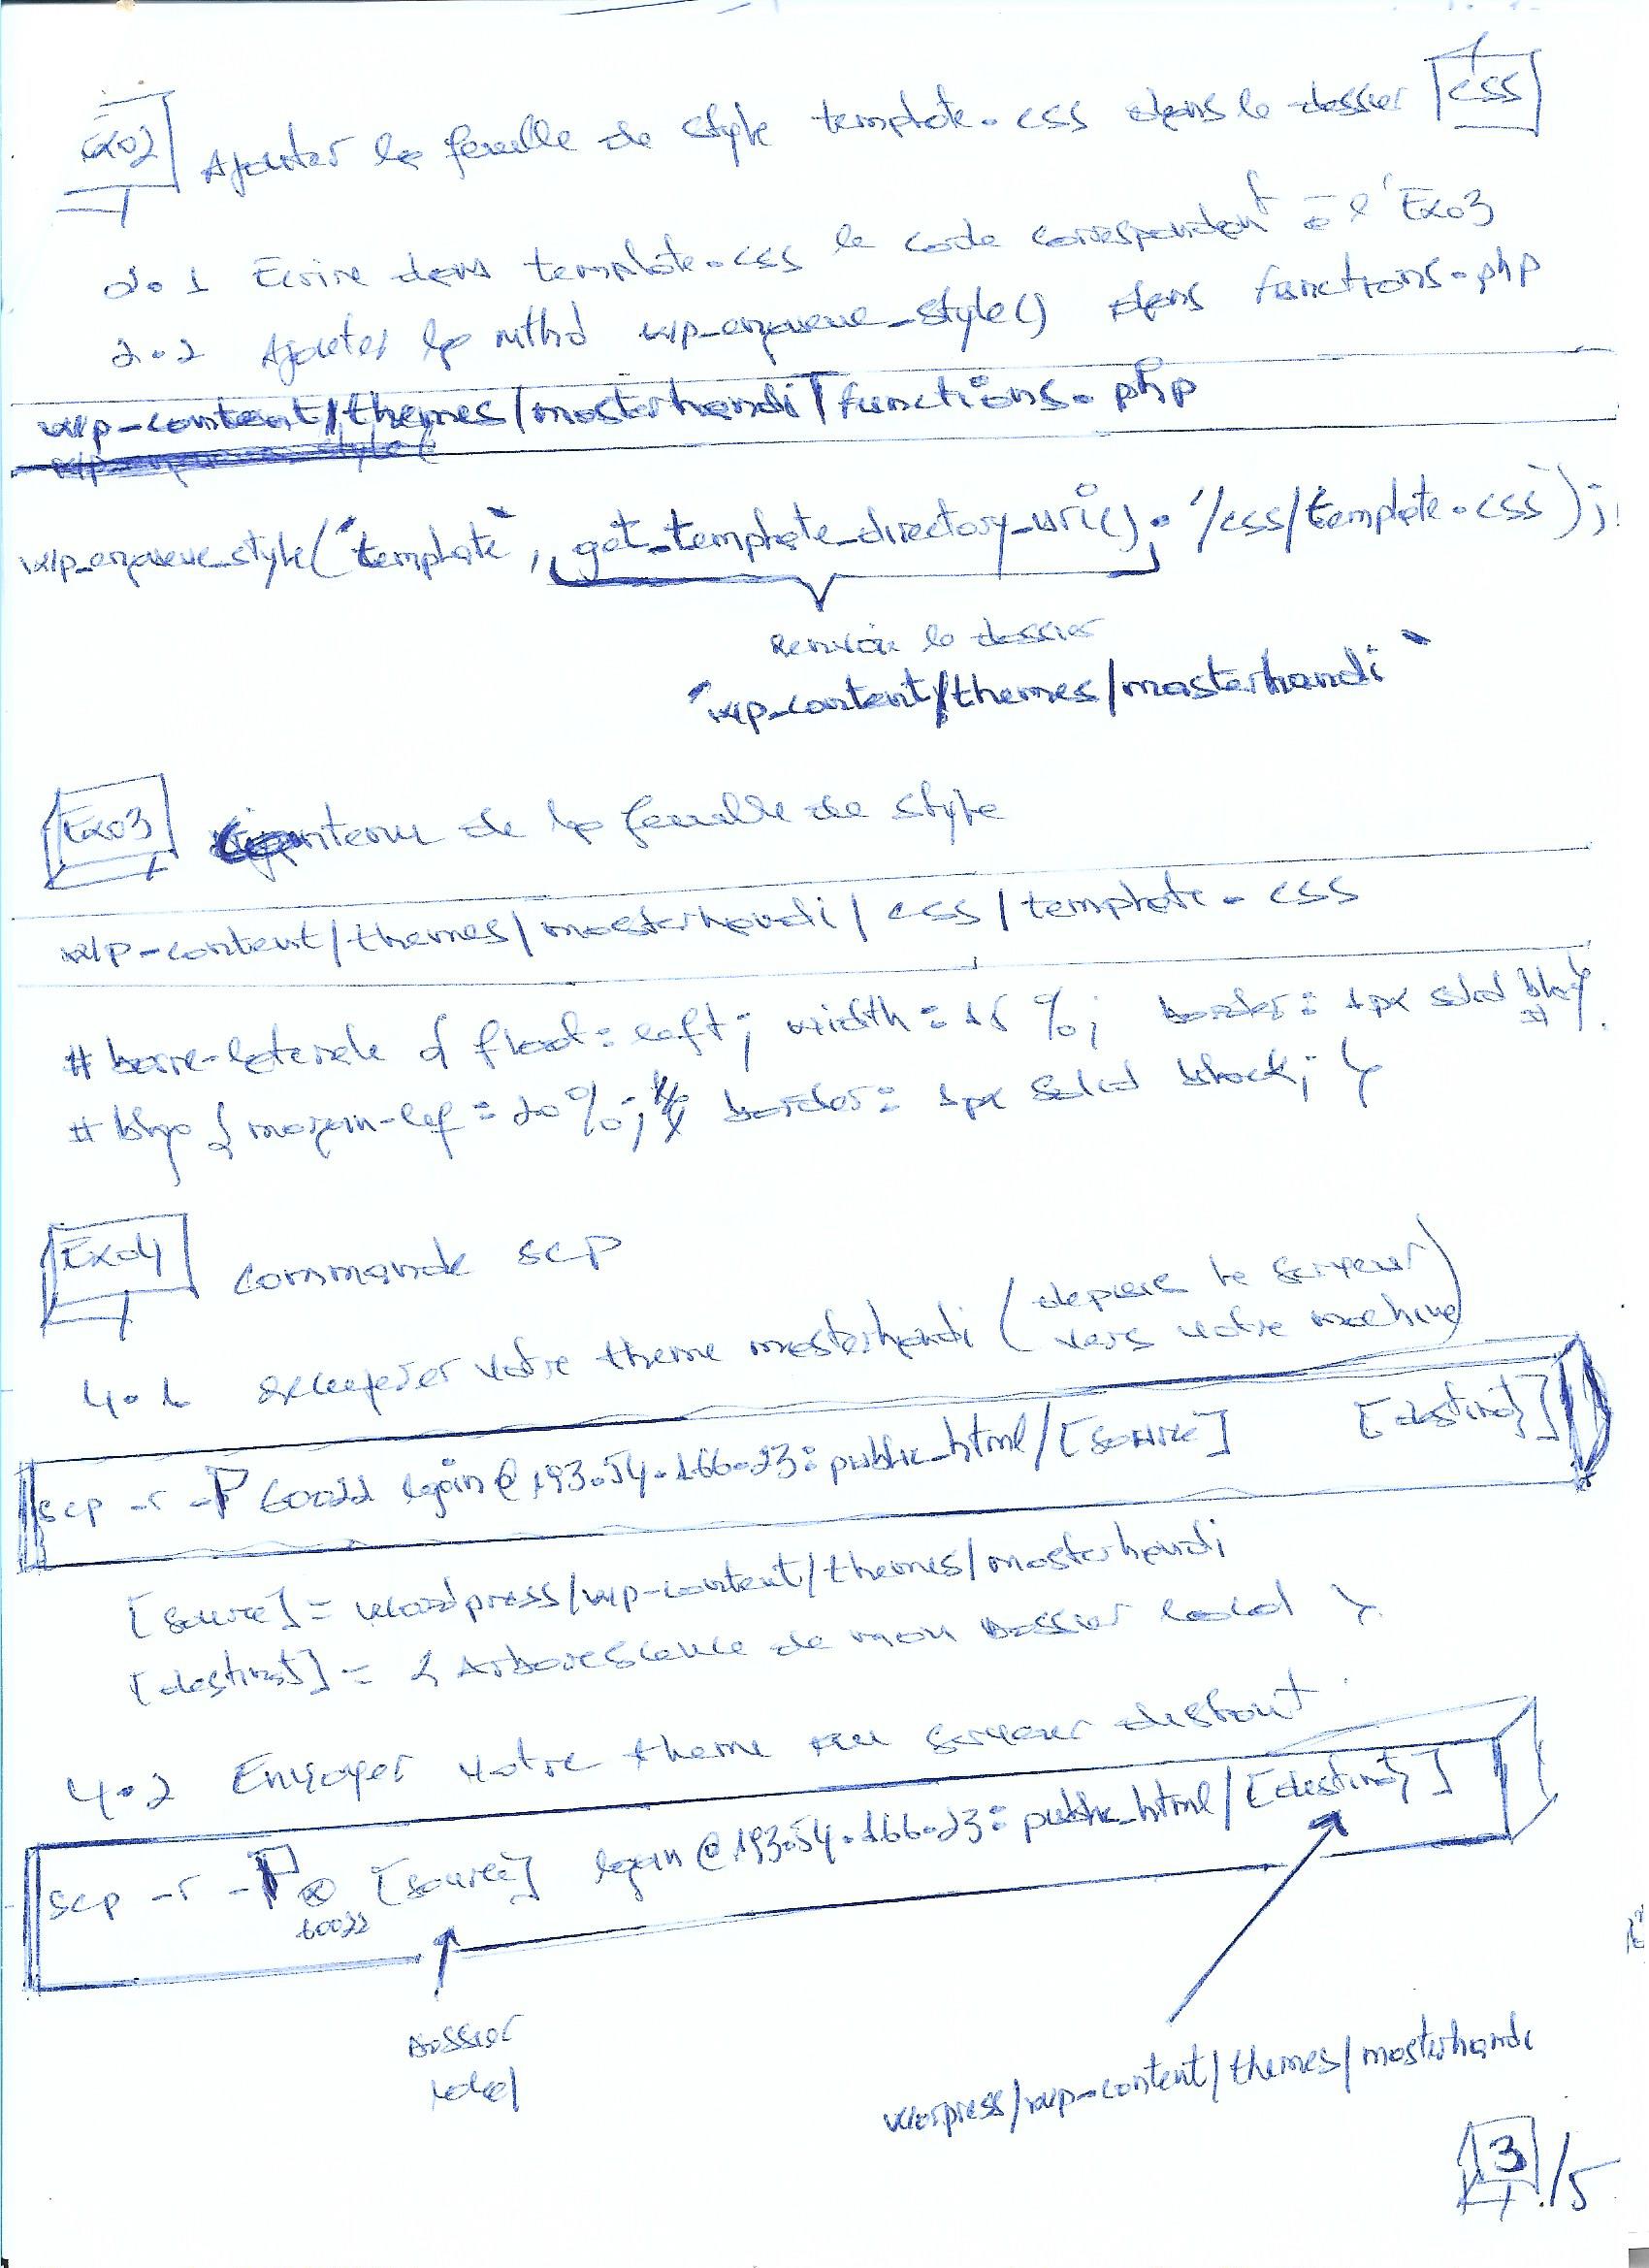 Exo2 Ajouter la feuille de style template.css dans le dossier css
2.1 Ecrire dans template.css le code correspondant à l'Exo3
2.2 Ajouter la mthd wp_enqueue_style() dans functions.php
wp-content/themes/masterhandi/functions.php
wp_enqueue_style("template", get_template_directory_uri(). '/css/template.css');
Renvoie le dossier
"wp_content/themes/masterhandi"
Exo3 Contenu de la feuille de style
wp-content/themes/masterhandi/css/template.css
#barre-laterale { float: left; width: 15%; border: 1px solid
#blys { margin-lef: 20%; border: 1px solid black; }
Exo4 commande scp
4.1 recuperer votre theme masterhandi (depuis le serveur
vers votre machine)
scp -r -P 60022 login@193.54.166.23:public_html/[source] [destinat]
[source] = wordpress/wp-content/themes/masterhandi
[destinat] = { Arborescence de mon dossier local }
4.2 Envoyer votre theme au serveur distant
scp -r -P [source] login@193.54.166.23:public_html/[destinat]
60022
Dossier
local
worpress/wp-content/themes/masterhandi
3/5